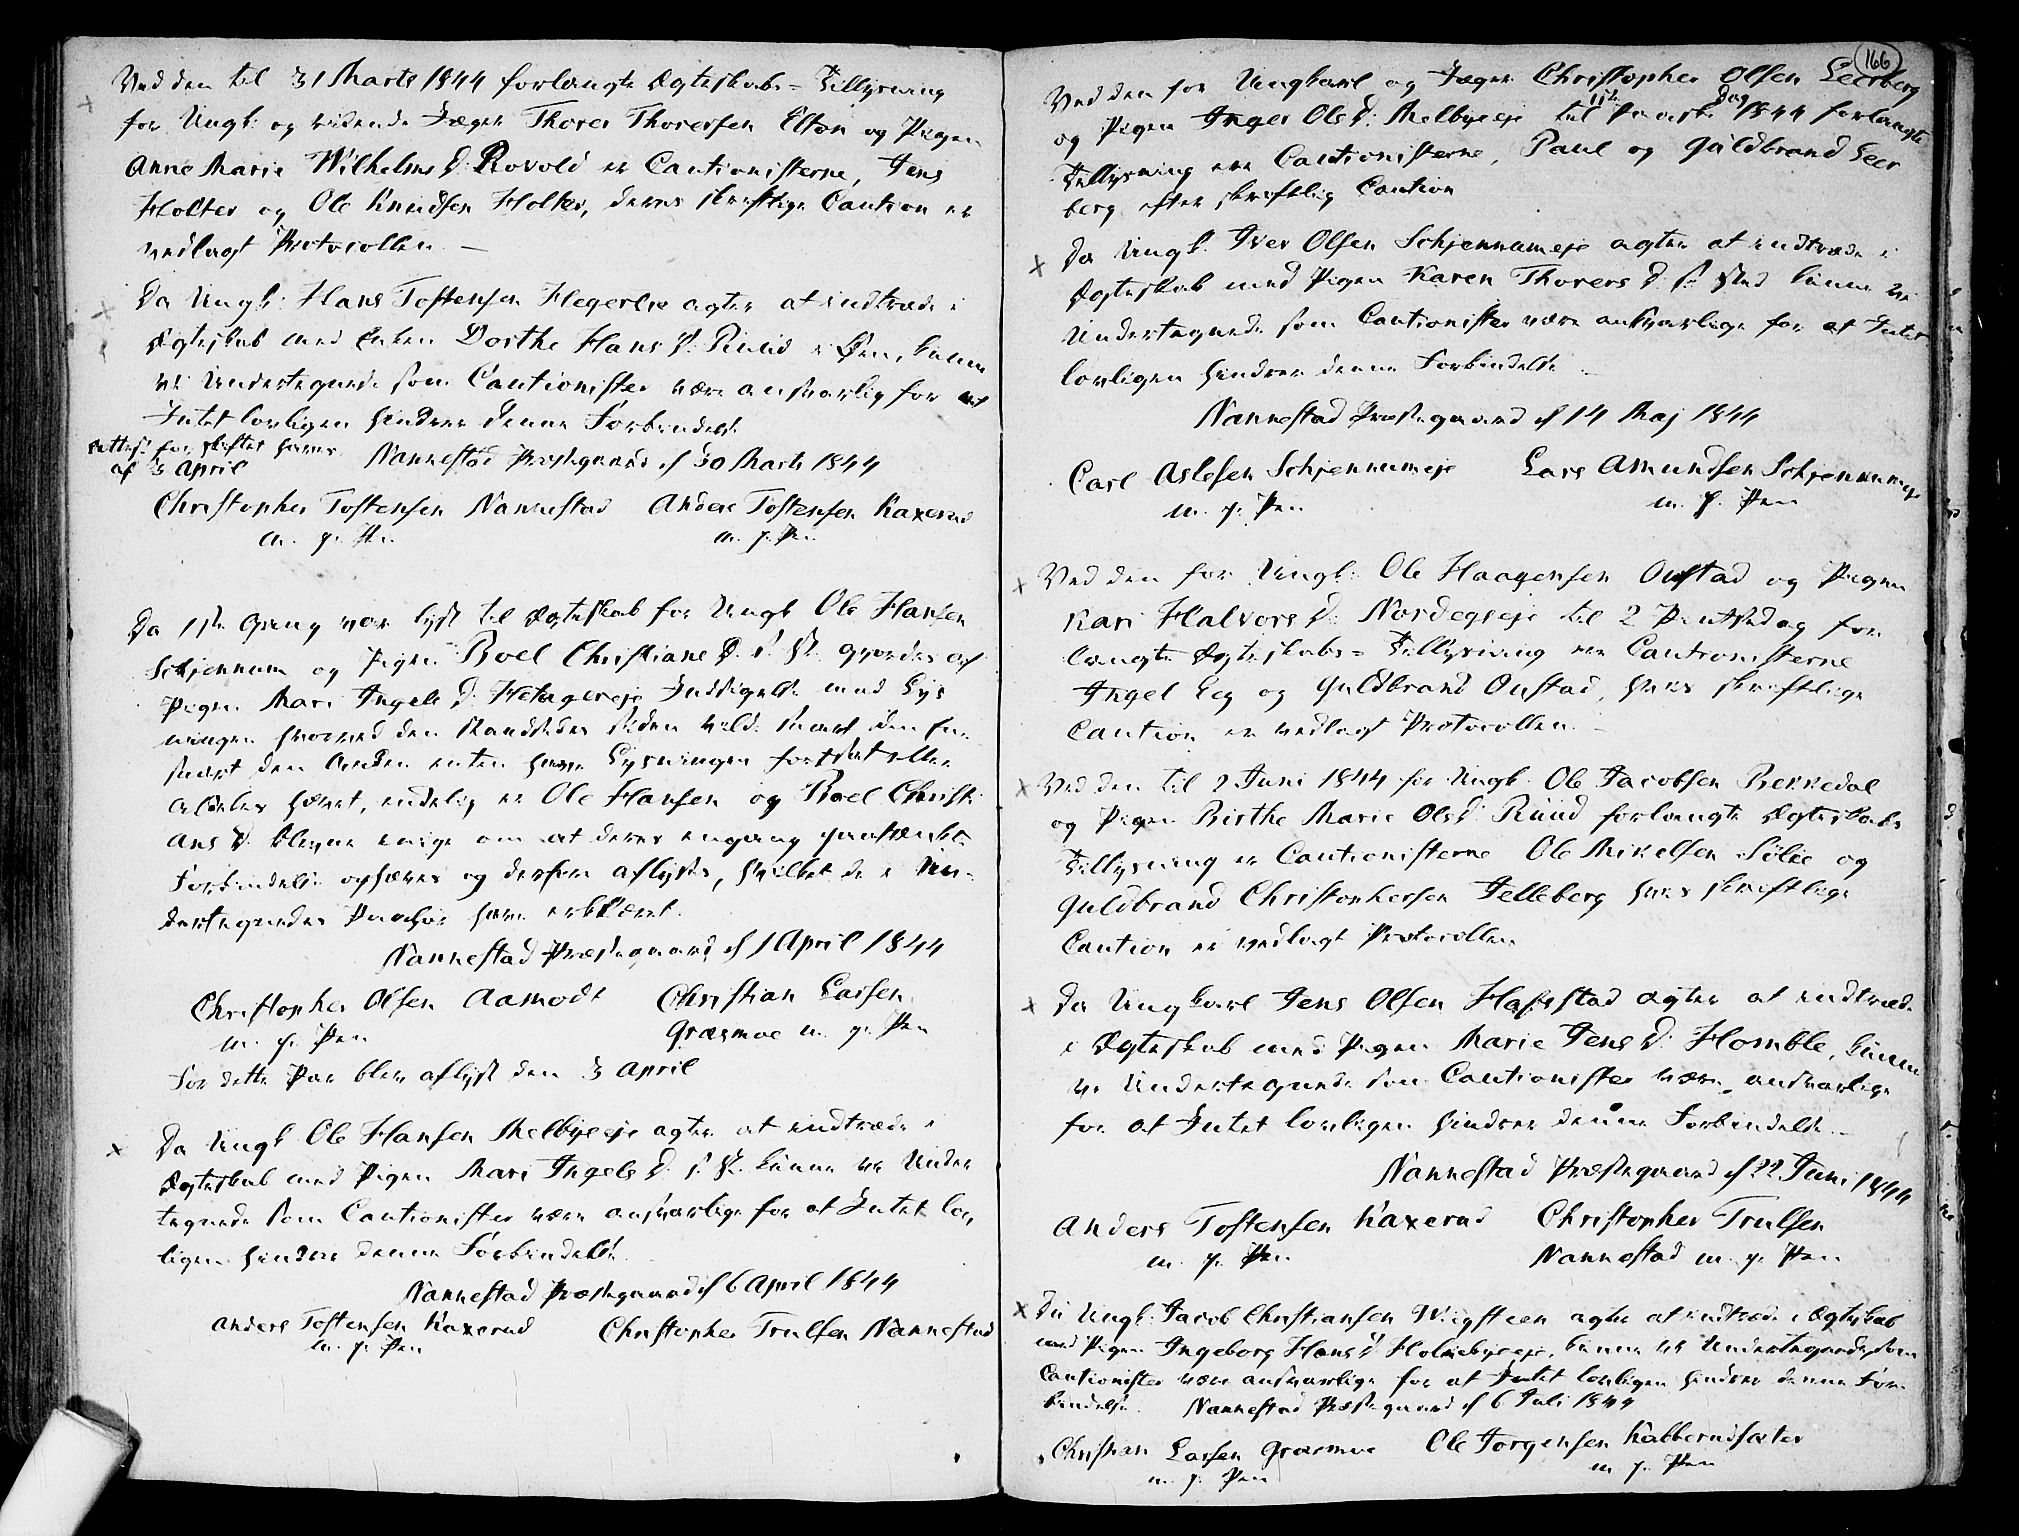 Ved den til 31 Marts 1844 forlangte Ægteskabs=Tillysning
for Ungk: og ridende Jæger Thorer Thorersen Elton og Pigen
Anne Marie Wilhelms D: Rovold er Cautionisterne, Jens
Holter og Ole Knudsen Holter, deres skriftlige Caution er
vedlagt Protocollen. —
Da Ungk: Hans Tostensen Hegerlie agter at indtræde i
Ægteskab med Enken Dorthe Hans D: Ruud i Øen, kunne
vi Undertegnede som Cautionister være ansvarlig for at
Intet lovligen hindrer denne Forbindelse
Attest for skifter haves
af 3 April
Nannestad Præstegaard d 30 Marts 1844
Christopher Tostensen Nannestad Anders Tostensen Kaxerud
m. p. Pen m. p. Pen
Da 1ste Gang var lyst til Ægteskab for Ungk Ole Hansen
Schjennum og Pigen Boel Christians D. i. St. gjordes af
Pigen Mari Ingels D: Indsigelse mod Lys
ningen hvorved den standsedes siden vilde snart den En
snart den Anden enten have Lysningen fortsat eller
aldeles hævet, endelig er Ole Hansen og Boel Christi
ans D: blevne enige om at deres engang paatænkte
Forbindelse ophæves og derfor aflyses, hvilket de i Un-
dertegnedes Paahør have erklæret.
Nannestad Præstegaard d 1 April 1844
Christopher Olsen Aamodt Christian Larsen
m. p. Pen Græsmoe m. p. Pen
For dette Par blev aflyst den 3 April
Da Ungk Ole Hansen Melbyeeje agter at indtræde i
Ægteskab med Pigen Mari Ingels D. i. St. kunne vi Under
tegnede som Cautionister være ansvarlige for at Intet lov
ligen hindrer denne Forbindelse
Nannestad Præstegaard d 6 April 1844
Anders Tostensen Kaxerud Christopher Trulsen Nannestad
m. p. Pen
166
Ved den for Ungkarl og Jæger Christopher Olsen Leerberg
og Pigen Inger Ols D: Melbyeeje til 1ste Paaske Dag 1844 forlangte
Tillysning ere Cautionisterne, Paul og Guldbrand Leer
berg efter skriftlig Caution
Da Ungk. Iver Olsen Schjennumeje agter at indtræde i
Ægteskab med Pigen Karen Thorers D. i. Sted kunne vi
Undertegnede som Cautionister være ansvarlige for at Intet
lovligen hindrer denne Forbindelse —
Nannestad Præstegaard d 14 Maj 1844
Carl Aslesen Schjennumeje Lars Amundsen Schjennumeje
m. p. Pen m. p. Pen
Ved den for Ungk: Ole Haagensen Onstad og Pigen
Kari Halvors D: Nordegseje til 2 Pintsedag for
langte Ægteskabs=Tillysning ere Cautionisterne
Ingel Eeg og Guldbrand Onstad, hvis skriftlige
Caution er vedlagt Protocollen. —
Ved den til 2 Juni 1844 for Ungk Ole Jacobsen Bekkedal
og Pigen Birthe Marie Ols D: Ruud forlangte Ægteskabs
Tillysning er Cautionisterne Ole Mikelsen Sølie og
Guldbrand Christophersen Telleberg hvis skriftlige
Caution er vedlagt Protocollen
Da Ungkarl Jens Olsen Hafstad agter at indtræde
i Ægteskab med Pigen Marie Jens D: Homble, kunne
vi Undertegnede som Cautionister være ansvarlige
for at Intet lovligen hindrer denne Forbindelse. —
Nannestad Præstegaard d 22 Juni 1844
Anders Tostensen Kaxerud Christopher Trulsen
m. p. Pen Nannestad m. p. Pen
Da Ungk: Jacob Christiansen Wiigsteen agter at indtræde i Ægteskab
med Pigen Ingeborg Hans D Holmebyeeje, kunne vi Undertegnede som
Cautionister være ansvarlige for at Intet lovligen hindrer denne For
bindelse. Nannestad Præstegaard d 6 Juli 1844
Christian Larsen Græsmoe Ole Jorgensen Kabberudsæter
m. p. Pen m. p. Pen